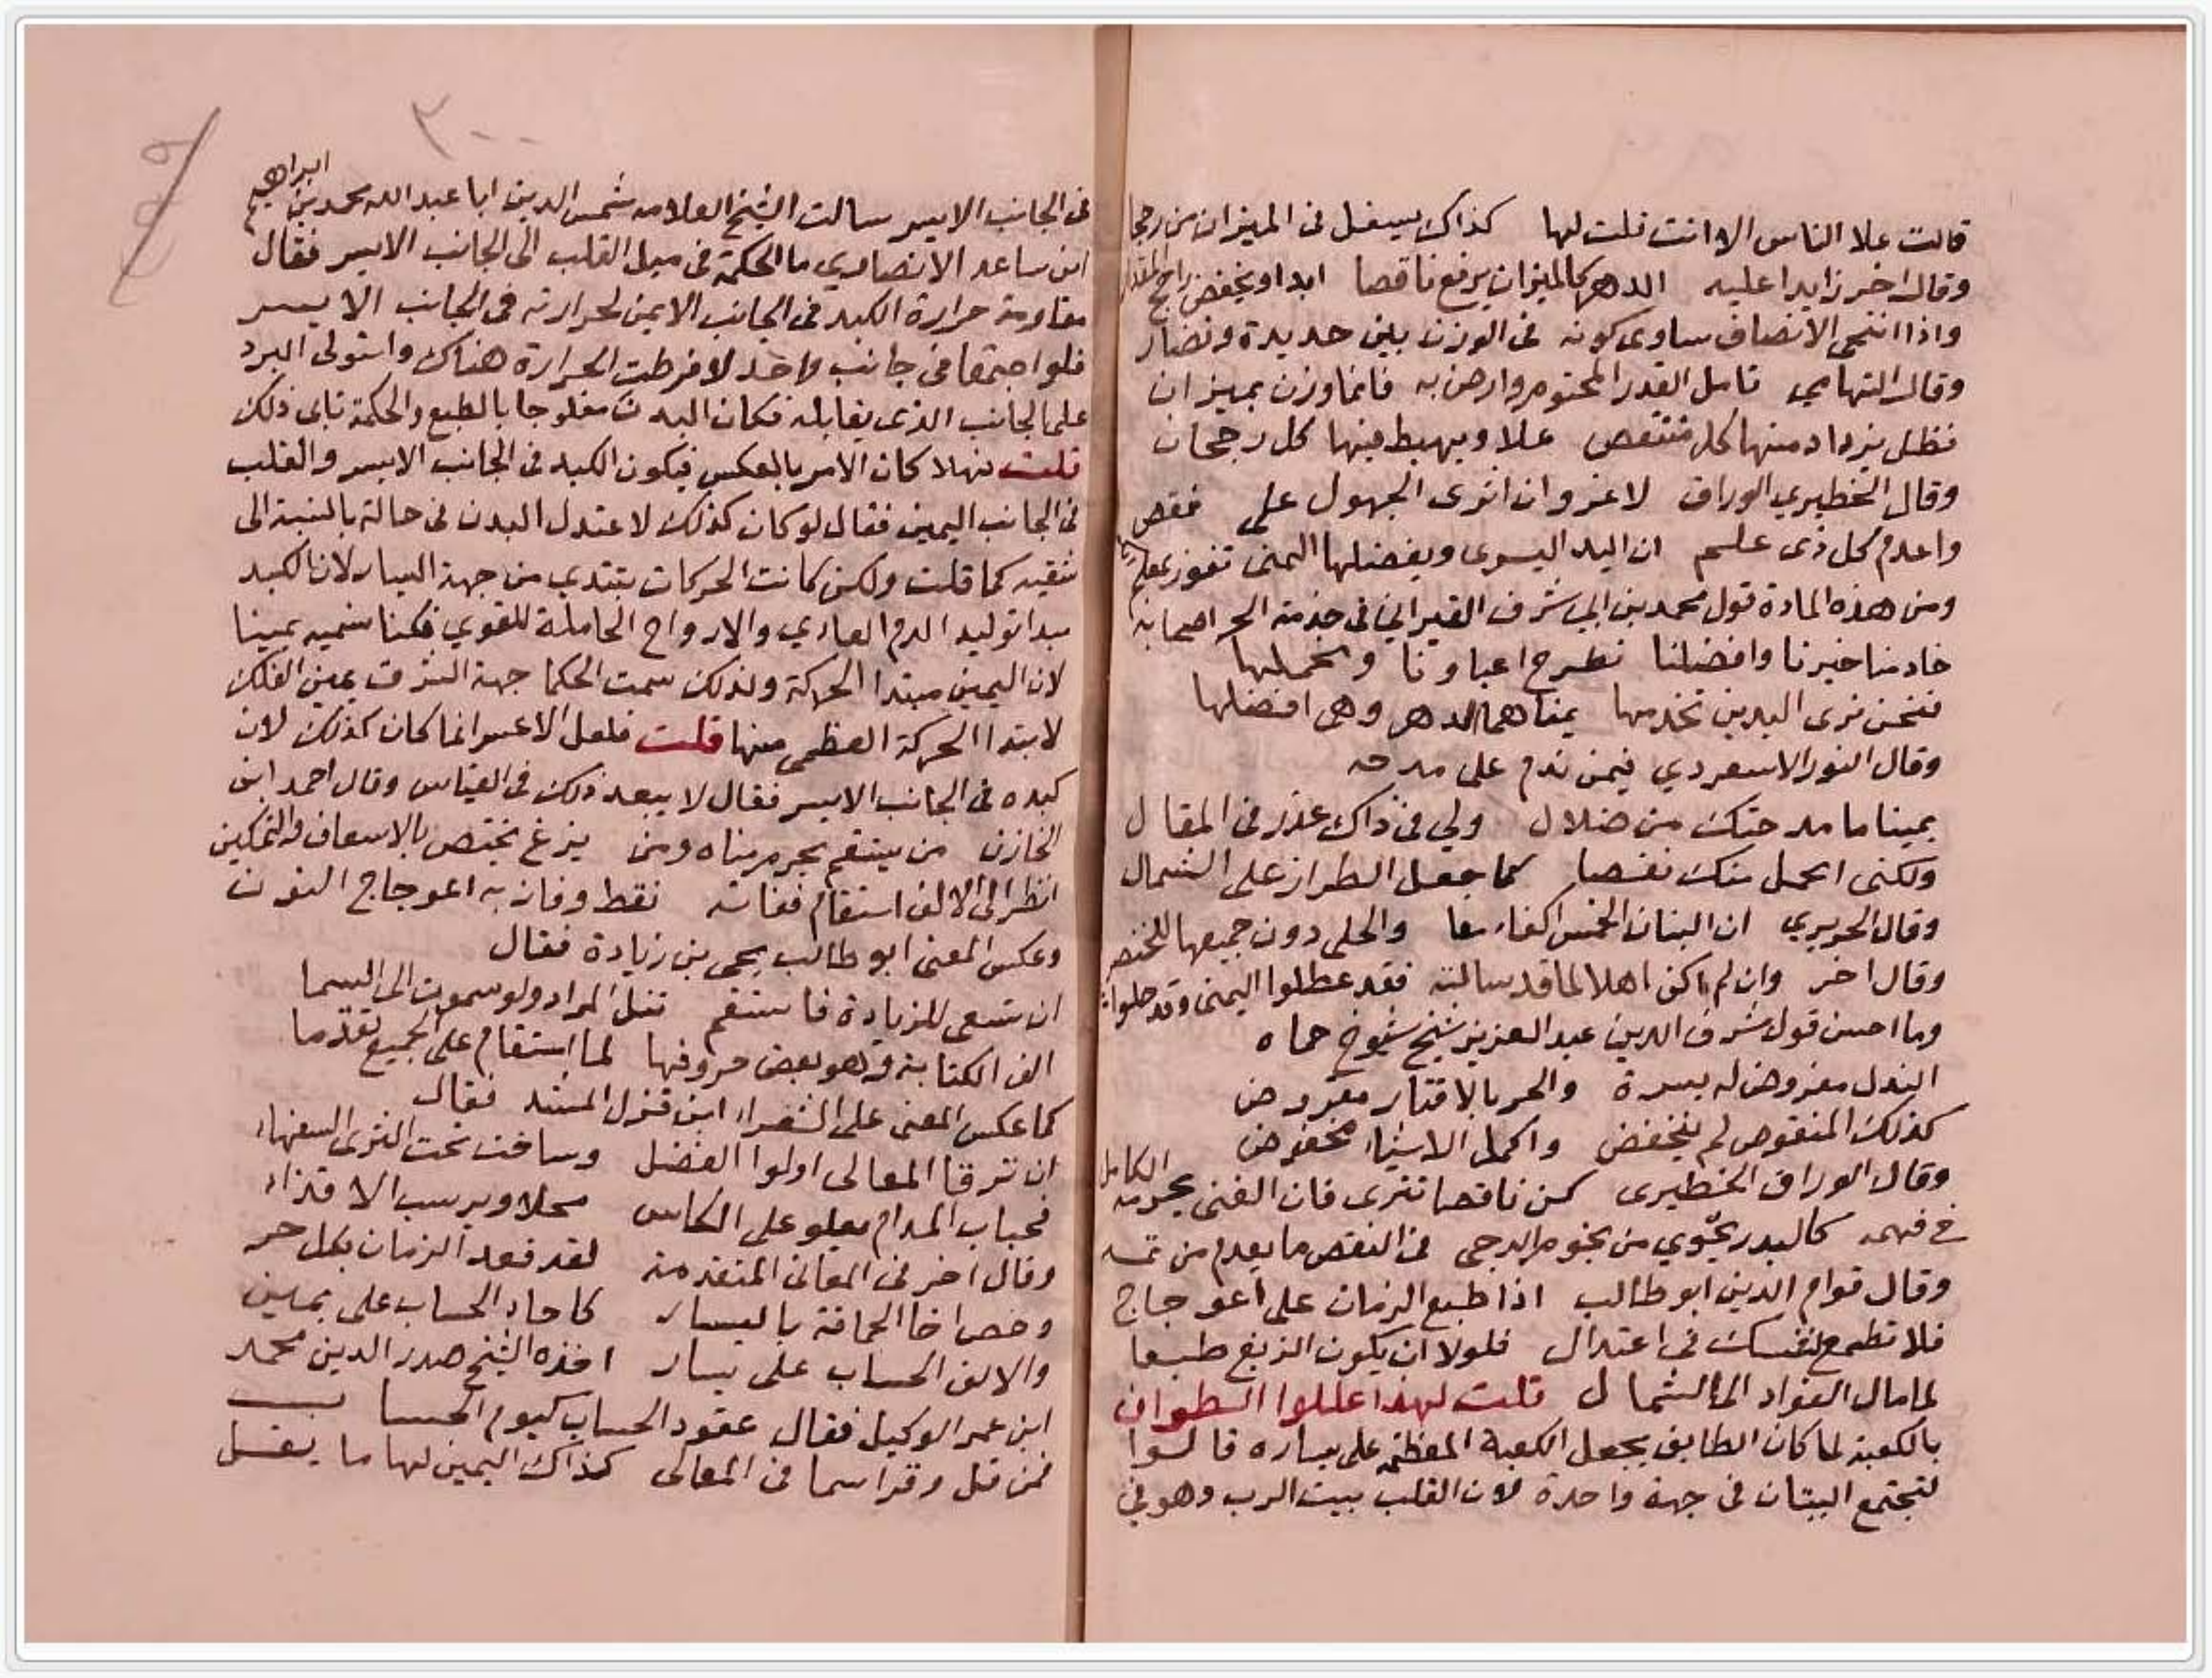 قالت علا الناس الا انت قلت لها كذاك يسفل فى الميزان من رجحا
وقال اخر زايدا عليه الدهر كالميزان يرفع ناقصا ابدا ويخفض راجح المقدار
واذا انتحى الانصاف ساوى كونه فى الوزن بين حديدة ونضار
وقال التهامي تامل القدر المحتوم وارض به فانما وزن بميزان
فظل يزداد منها كل منتقص علا ويهبط فيها كل رجحان
وقال الخطيري الوراق لا غرو ان اثرى الجهول على نقص
واعدم كل ذى علم ان اليد اليسرى ويفضلها اليمنى تفوز
ومن هذه المادة قول محمد بن ابي شرف القيراني فى خدمة الحر اصحابه
خادمنا خيرنا وافضلنا نطرح اعباونا ويحملها
فنحن نرى اليدين تخدمها يمناهما الدهر وهى افضلها
وقال النور الاسعردي فيمن ندم على مدحه
يمينا ما مدحتك من ضلال ولي فى ذاك عذر فى المقال
ولكنى احمل منك نقصا كما جعل الطراز على الشمال
وقال الحريري ان البنان الخمس اكفاء معا والحلى دون جميعها للخنصر
وقال اخر وان لم اكن اهلا لما قد سالته فقد عطلوا اليمنى وقد حلوا
وما احسن قول شرف الدين عبد العزيز شيخ شيوخ حماه
النذل مفروض له يسرة والحر بالاقتار مقروض
كذلك المنقوص لم ينخفض واكمل الاشياء مخفوض
وقال الوراق الخطيرى كن ناقصا تثرى فان الغنى يحرمه الكامل
فى فهمه كالبدر يحوي من نجوم الدجى فى النقص ما يعدم من تمه
وقال قوام الدين ابو طالب اذا طبع الزمان على اعوجاج
فلا تطمع لنفسك فى اعتدال فلولا ان يكون الزيغ طبعا
لما مال الفواد الى الشمال قلت لهذا عللوا الطواف
بالكعبة لما كان الطايف يجعل الكعبة المعظمة على يساره قالوا
لتجتمع البيتان فى جهة واحدة لان القلب بيت الرب وهو في
٣٠٠
فى الجانب الايسر سالت الشيخ العلامه شمس الدين ابا عبد الله محمد بن ابراهيم
ابن ساعد الانصاري ما الحكمة فى ميل القلب الى الجانب الايسر فقال
مقاومة حرارة الكبد فى الجانب الايمن لحرارته فى الجانب الايسر
فلو اجتمعا فى جانب واحد لافرطت الحرارة هناك واستولى البرد
على الجانب الذى يقابله فكان البدن مفلوجا بالطبع والحكمة تابى ذلك
قلت فهلا كان الامر بالعكس فيكون الكبد فى الجانب الايسر والقلب
فى الجانب اليمين فقال لو كان كذلك لاعتدل البدن فى حالة بالنسبة الى
شقيه كما قلت ولكن كانت الحركات تبتدي من جهة اليسار لان الكبد
مبدا توليد الدم الغادي والارواح الحاملة للقوي فكنا نسميه يمينا
لان اليمين مبتدا الحركة ولذلك سمت الحكما جهة الشرق يمين الفلك
لابتدا الحركة العظمى منها قلت فلعل الاعسر انما كان كذلك لان
كبده فى الجانب الايسر فقال لا يبعد ذلك فى القياس وقال احمد ابن
الخازن من يستقم يحرم مناه ومن يزغ يختص بالاسعاف والتمكين
انظر الى الالف استقام ففاته نقط وفاز به اعوجاج النون
وعكس المعنى ابو طالب يحى بن زيادة فقال
ان تسعى للزيادة فاستقم تنل المراد ولو سموت الى السما
الف الكتابة وهو بعض حروفها لما استقام على الجميع تقدما
كما عكس المعنى على الشعراء ابن قزل المشد فقال
ان ترقا المعالى اولوا الفضل وساخت تحت الثرى السفهاء
فحباب المدام يعلو على الكاس محلا ويرسب الاقذاء
وقال اخر فى المعانى المتقدمة لقد قعد الزمان بكل حر
وخص اخا الحماقة باليسار كاحاد الحساب على يمين
والالف الحساب على يسار اخذه الشيخ صدر الدين محمد
ابن عمر الوكيل فقال عقود الحساب كيوم الحساب
فمن قل وقرا سما فى المعالى كذاك اليمين لها ما يقل